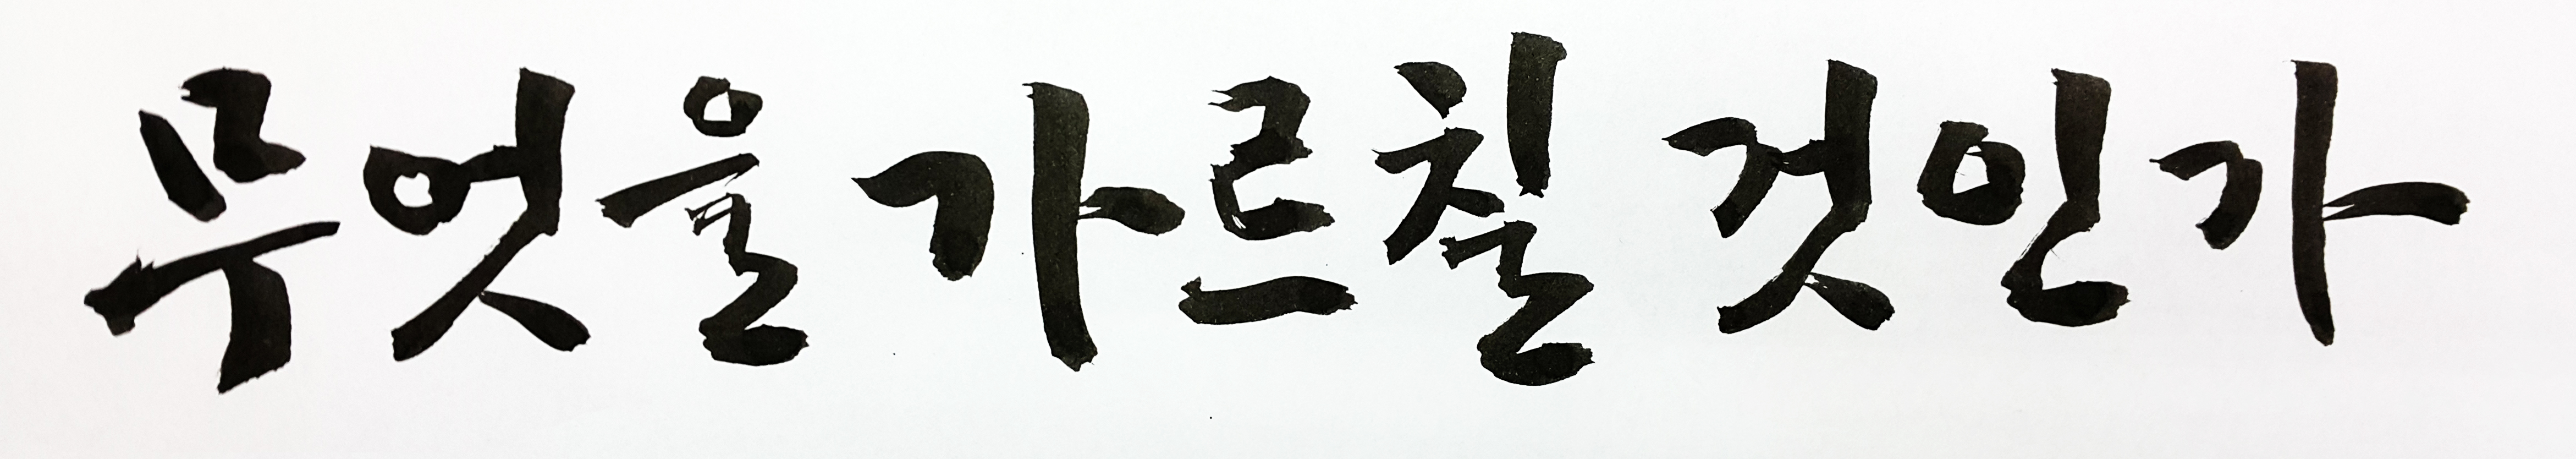 무엇을 가르칠 것인가